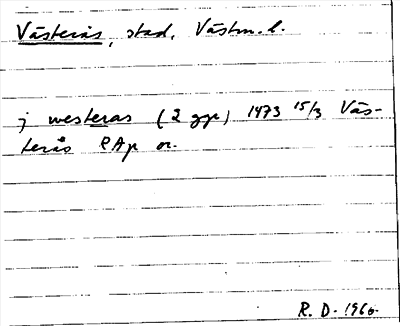 Västerås, stad, Västm. l.
j westeras (2 ggr) 1473 15/3 Väs-
terås RAp or.
R. D. 1960.